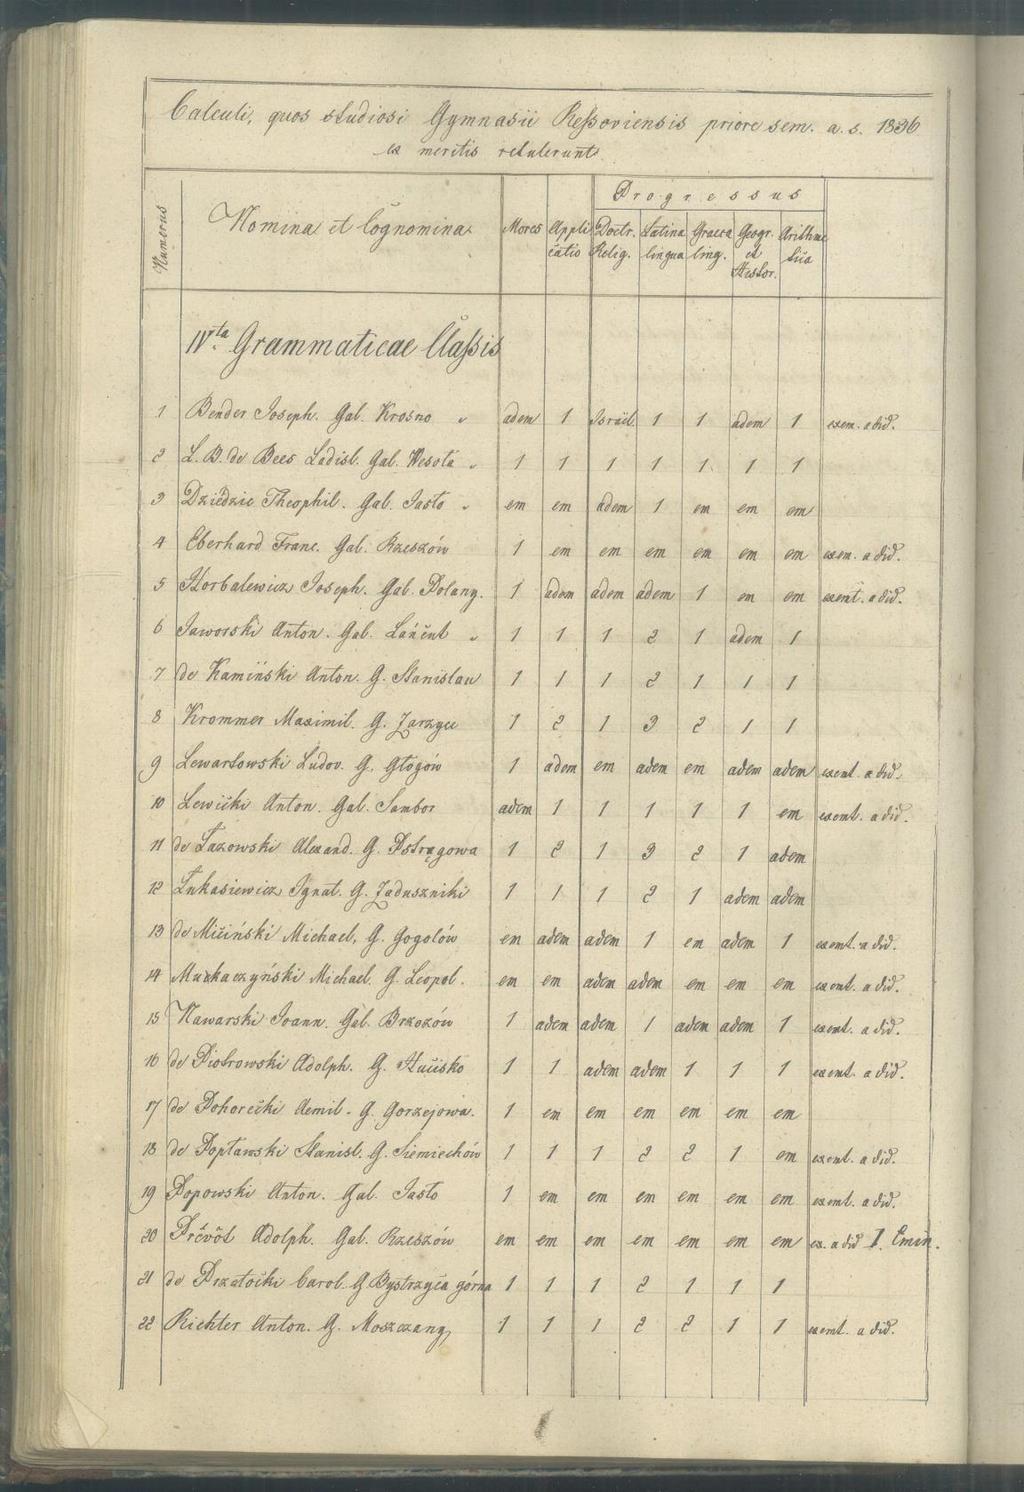 Calculi, quos studiosi Gymnasii Reſsoviensis priore sem. a. s. 1836
ex meritis retulerunt
Numerus Nomina et Cognomina Mores Appli catio Progressus Doctr. Relig. Latina lingua Graeca ling. Geogr. et Histor. Arithme tica
IV.ta Grammaticae Claſsis
1 Bender Joseph. Gal. Krosno " adem 1 Israël. 1 1 adem 1 exem. a did.
2 L. B. de Bees Ladisl. Gal. Wesoła " 1 1 1 1 1 1 1
3 Dziedzic Theophil. Gal. Jasło " em em adem 1 em em em
4 Eberhard Franc. Gal. Rzeszów 1 em em em em em em exem. a did.
5 Horbalewicz Joseph. Gal. Polany. 1 adem adem adem 1 em em exemt. a did.
6 Jaworski Anton. Gal. Łańcut " 1 1 1 2 1 adem 1
7 de Kamiński Anton. G. Stanislau 1 1 1 2 1 1 1
8 Krommer Maximil. G. Jarzyce 1 2 1 3 2 1 1
9 Lewartowski Ludov. G. Głogów 1 adem em adem em adem adem exemt. a did.
10 Lewicki Anton. Gal. Sambor adem 1 1 1 1 1 em exemt. a did.
11 de Łazowski Alexand. G. Pstrągowa 1 2 1 3 2 1 adem
12 Łukasiewicz Ignat. G. Zaduszniki 1 1 1 2 1 adem adem
13 de Miciński Michael, G. Gogołów em adem adem 1 em adem 1 exemt. a did.
14 Michael. G. Leopol. em em adem adem em em em exemt. a did.
15 Nawarski Joann. Gal. Brzozów 1 adem adem 1 adem adem 1 exemt. a did.
16 de Piotrowski Adolph. G. Hucisko 1 1 adem adem 1 1 1 exemt. a did.
17 de Pohorecki Aemil. G. Gorzejowa. 1 em em em em em em
18 de Popławski Stanisl. G. Siemiechów 1 1 1 2 2 1 em exemt. a did.
19 Popowski Anton. Gal. Jasło 1 em em em em em em exemt. a did.
20 Prévôt Adolph. Gal. Rzeszów em em em em em em em ex. a did 1. Emin.
21 de Carol. G Bystrzyca górna 1 1 1 2 1 1 1
22 Richter Anton. G. Moszczany 1 1 1 2 2 1 1 exemt. a did.